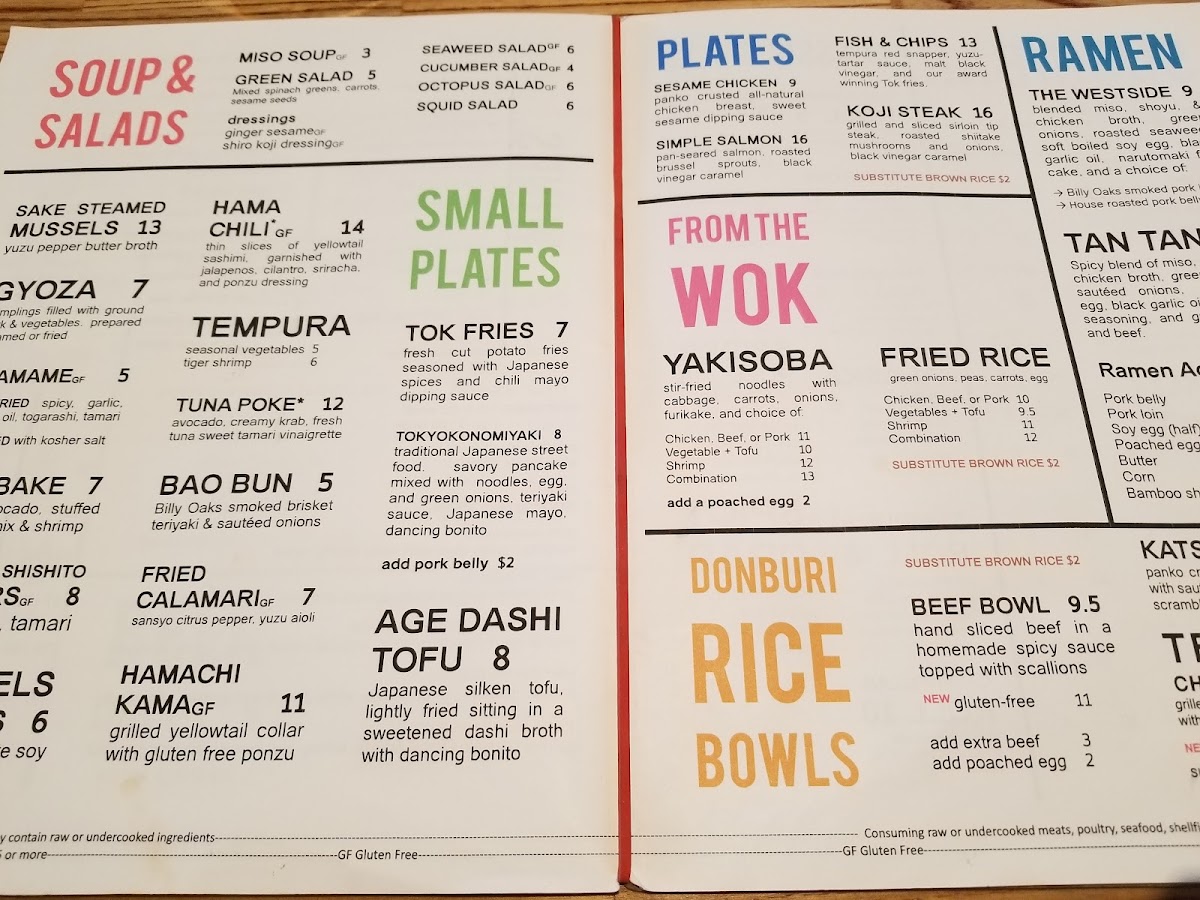 SOUP &
SALADS
MISO SOUPGF 3
GREEN SALAD 5
Mixed spinach greens, carrots,
sesame seeds
dressings
ginger sesameGF
shiro koji dressingGF
SEAWEED SALADGF 6
CUCUMBER SALADGF 4
OCTOPUS SALADGF 6
SQUID SALAD 6
SAKE STEAMED
MUSSELS 13
yuzu pepper butter broth
GYOZA 7
filled with ground
& vegetables. prepared
or fried
5
spicy, garlic,
oil, togarashi, tamari
with kosher salt
BAKE 7
stuffed
& shrimp
SHISHITO
8
, tamari
6
soy
HAMA
CHILI*GF 14
thin slices of yellowtail
sashimi, garnished with
jalapenos, cilantro, sriracha,
and ponzu dressing
TEMPURA
seasonal vegetables 5
tiger shrimp 6
TUNA POKE* 12
avocado, creamy krab, fresh
tuna sweet tamari vinaigrette
BAO BUN 5
Billy Oaks smoked brisket
teriyaki & sautéed onions
FRIED
CALAMARIGF 7
sansyo citrus pepper, yuzu aioli
HAMACHI
KAMAGF 11
grilled yellowtail collar
with gluten free ponzu
SMALL
PLATES
TOK FRIES 7
fresh cut potato fries
seasoned with Japanese
spices and chili mayo
dipping sauce
TOKYOKONOMIYAKI 8
traditional Japanese street
food. savory pancake
mixed with noodles, egg,
and green onions, teriyaki
sauce, Japanese mayo,
dancing bonito
add pork belly $2
AGE DASHI
TOFU 8
Japanese silken tofu,
lightly fried sitting in a
sweetened dashi broth
with dancing bonito
contain raw or undercooked ingredients
or more GF Gluten Free
PLATES
SESAME CHICKEN 9
panko crusted all-natural
chicken breast, sweet
sesame dipping sauce
SIMPLE SALMON 16
pan-seared salmon, roasted
brussel sprouts, black
vinegar caramel
FISH & CHIPS 13
tempura red snapper, yuzu-
tartar sauce, malt black
vinegar, and our award
winning Tok fries.
KOJI STEAK 16
grilled and sliced sirloin tip
steak, roasted shiitake
mushrooms and onions,
black vinegar caramel
SUBSTITUTE BROWN RICE $2
FROM THE
WOK
YAKISOBA
stir-fried noodles with
cabbage, carrots, onions,
furikake, and choice of:
Chicken, Beef, or Pork 11
Vegetable + Tofu 10
Shrimp 12
Combination 13
add a poached egg 2
FRIED RICE
green onions, peas, carrots, egg
Chicken, Beef, or Pork 10
Vegetables + Tofu 9.5
Shrimp 11
Combination 12
SUBSTITUTE BROWN RICE $2
RAMEN
THE WESTSIDE 9
blended miso, shoyu, &
chicken broth,
onions, roasted
soft boiled soy egg,
garlic oil, narutomaki
cake, and a choice of:
→ Billy Oaks smoked pork
→ House roasted pork
TAN
Spicy blend of miso,
chicken broth,
sautéed onions,
egg, black garlic
seasoning, and
and beef.
Ramen
Pork belly
Pork loin
Soy egg (half)
Poached egg
Butter
Corn
Bamboo
DONBURI
RICE
BOWLS
SUBSTITUTE BROWN RICE $2
BEEF BOWL 9.5
hand sliced beef in a
homemade spicy sauce
topped with scallions
NEW gluten-free 11
add extra beef 3
add poached egg 2
panko
with
Consuming raw or undercooked meats, poultry, seafood,
GF Gluten Free